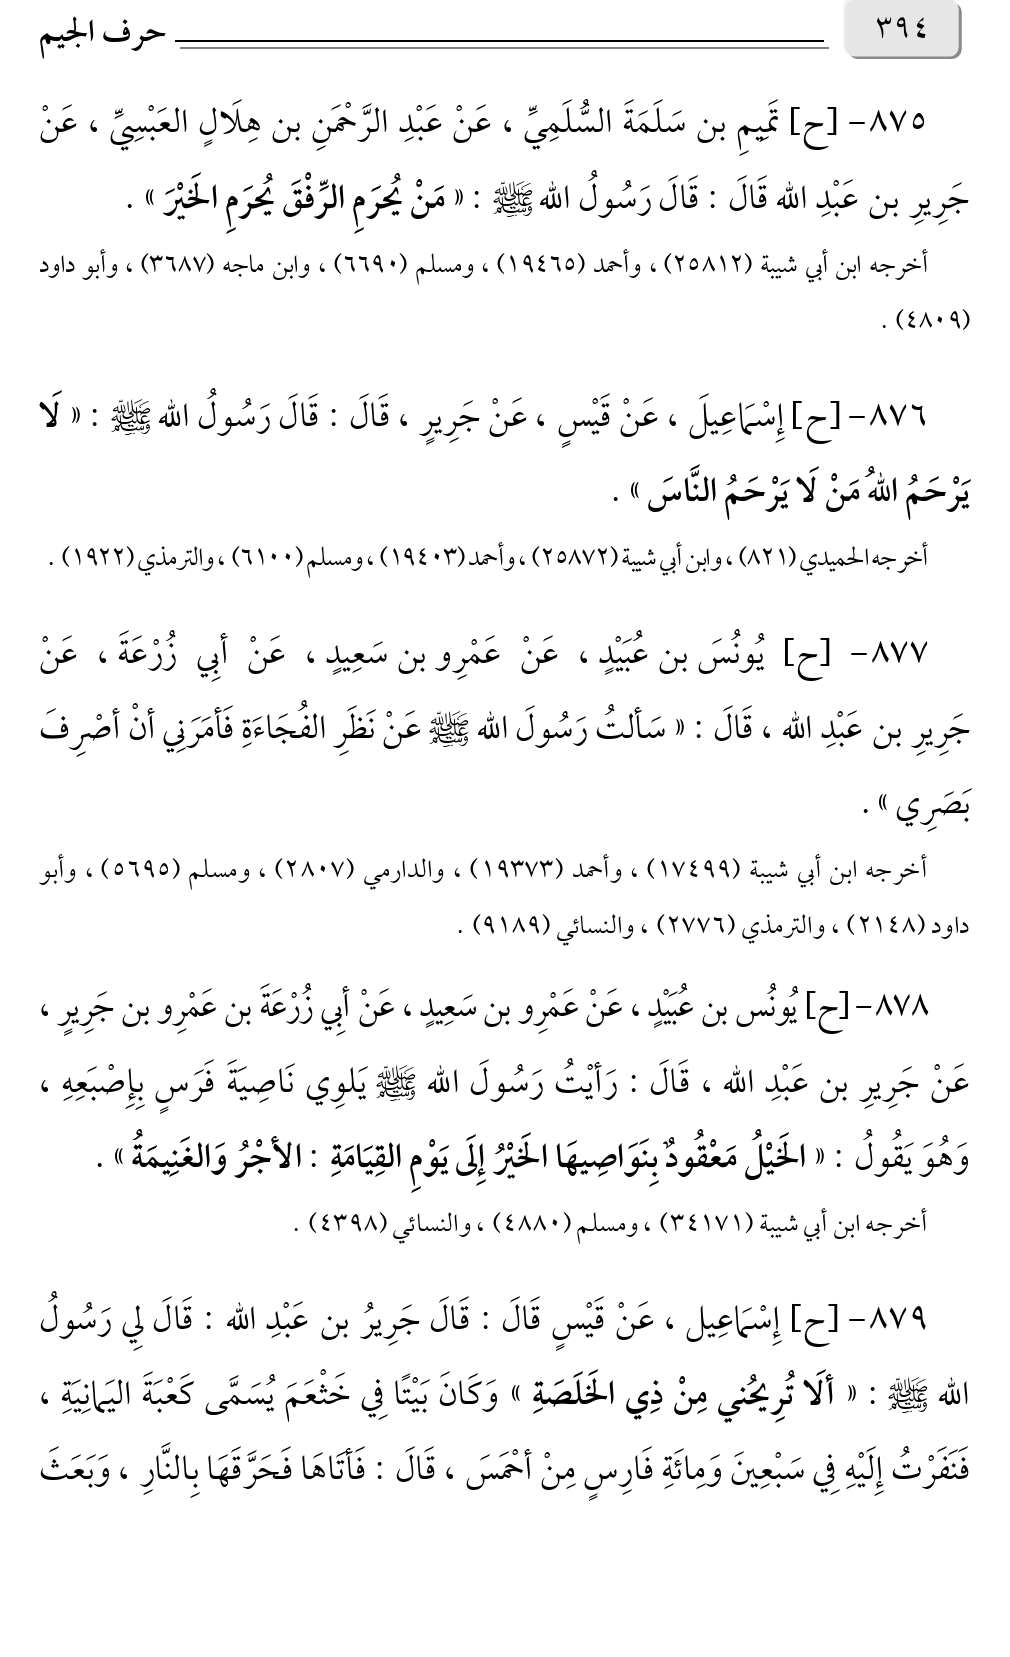 ٣٩٤
حرف الجيم
٨٧٥- [ح] تَمِيمِ بن سَلَمَةَ السُّلَمِيِّ ، عَنْ عَبْدِ الرَّحْمَنِ بن هِلَالٍ العَبْسِيِّ ، عَنْ
جَرِيرِ بن عَبْدِ الله قَالَ : قَالَ رَسُولُ الله ﷺ : « مَنْ يُحْرَمِ الرِّفْقَ يُحْرَمِ الخَيْرَ » .
أخرجه ابن أبي شيبة (٢٥٨١٢) ، وأحمد (١٩٤٦٥) ، ومسلم (٦٦٩٠) ، وابن ماجه (٣٦٨٧) ، وأبو داود
(٤٨٠٩) .
٨٧٦- [ح] إِسْمَاعِيلَ ، عَنْ قَيْسٍ ، عَنْ جَرِيرٍ ، قَالَ : قَالَ رَسُولُ الله ﷺ : « لَا
يَرْحَمُ اللهُ مَنْ لَا يَرْحَمُ النَّاسَ » .
أخرجه الحميدي (٨٢١) ، وابن أبي شيبة (٢٥٨٧٢) ، وأحمد (١٩٤٠٣) ، ومسلم (٦١٠٠) ، والترمذي (١٩٢٢) .
٨٧٧- [ح] يُونُسَ بن عُبَيْدٍ ، عَنْ عَمْرِو بن سَعِيدٍ ، عَنْ أبِي زُرْعَةَ ، عَنْ
جَرِيرِ بن عَبْدِ الله ، قَالَ : « سَألتُ رَسُولَ الله ﷺ عَنْ نَظَرِ الفُجَاءَةِ فَأمَرَنِي أنْ أصْرِفَ
بَصَرِي » .
أخرجه ابن أبي شيبة (١٧٤٩٩) ، وأحمد (١٩٣٧٣) ، والدارمي (٢٨٠٧) ، ومسلم (٥٦٩٥) ، وأبو
داود (٢١٤٨) ، والترمذي (٢٧٧٦) ، والنسائي (٩١٨٩) .
٨٧٨- [ح] يُونُس بن عُبَيْدٍ ، عَنْ عَمْرِو بن سَعِيدٍ ، عَنْ أبِي زُرْعَةَ بن عَمْرِو بن جَرِيرٍ ،
عَنْ جَرِيرِ بن عَبْدِ الله ، قَالَ : رَأيْتُ رَسُولَ الله ﷺ يَلوِي نَاصِيَةَ فَرَسٍ بِإِصْبَعِهِ ،
وَهُوَ يَقُولُ : « الخَيْلُ مَعْقُودٌ بِنَوَاصِيهَا الخَيْرُ إِلَى يَوْمِ القِيَامَةِ : الأجْرُ وَالغَنِيمَةُ » .
أخرجه ابن أبي شيبة (٣٤١٧١) ، ومسلم (٤٨٨٠) ، والنسائي (٤٣٩٨) .
٨٧٩- [ح] إِسْمَاعِيل ، عَنْ قَيْسٍ قَالَ : قَالَ جَرِيرُ بن عَبْدِ الله : قَالَ لِي رَسُولُ
الله ﷺ : « ألَا تُرِيحُني مِنْ ذِي الخَلَصَةِ » وَكَانَ بَيْتًا فِي خَثْعَمَ يُسَمَّى كَعْبَةَ اليَمانِيَةِ ،
فَنَفَرْتُ إِلَيْهِ فِي سَبْعِينَ وَمِائَةِ فَارِسٍ مِنْ أحْمَسَ ، قَالَ : فَأتَاهَا فَحَرَّقَهَا بِالنَّارِ ، وَبَعَثَ